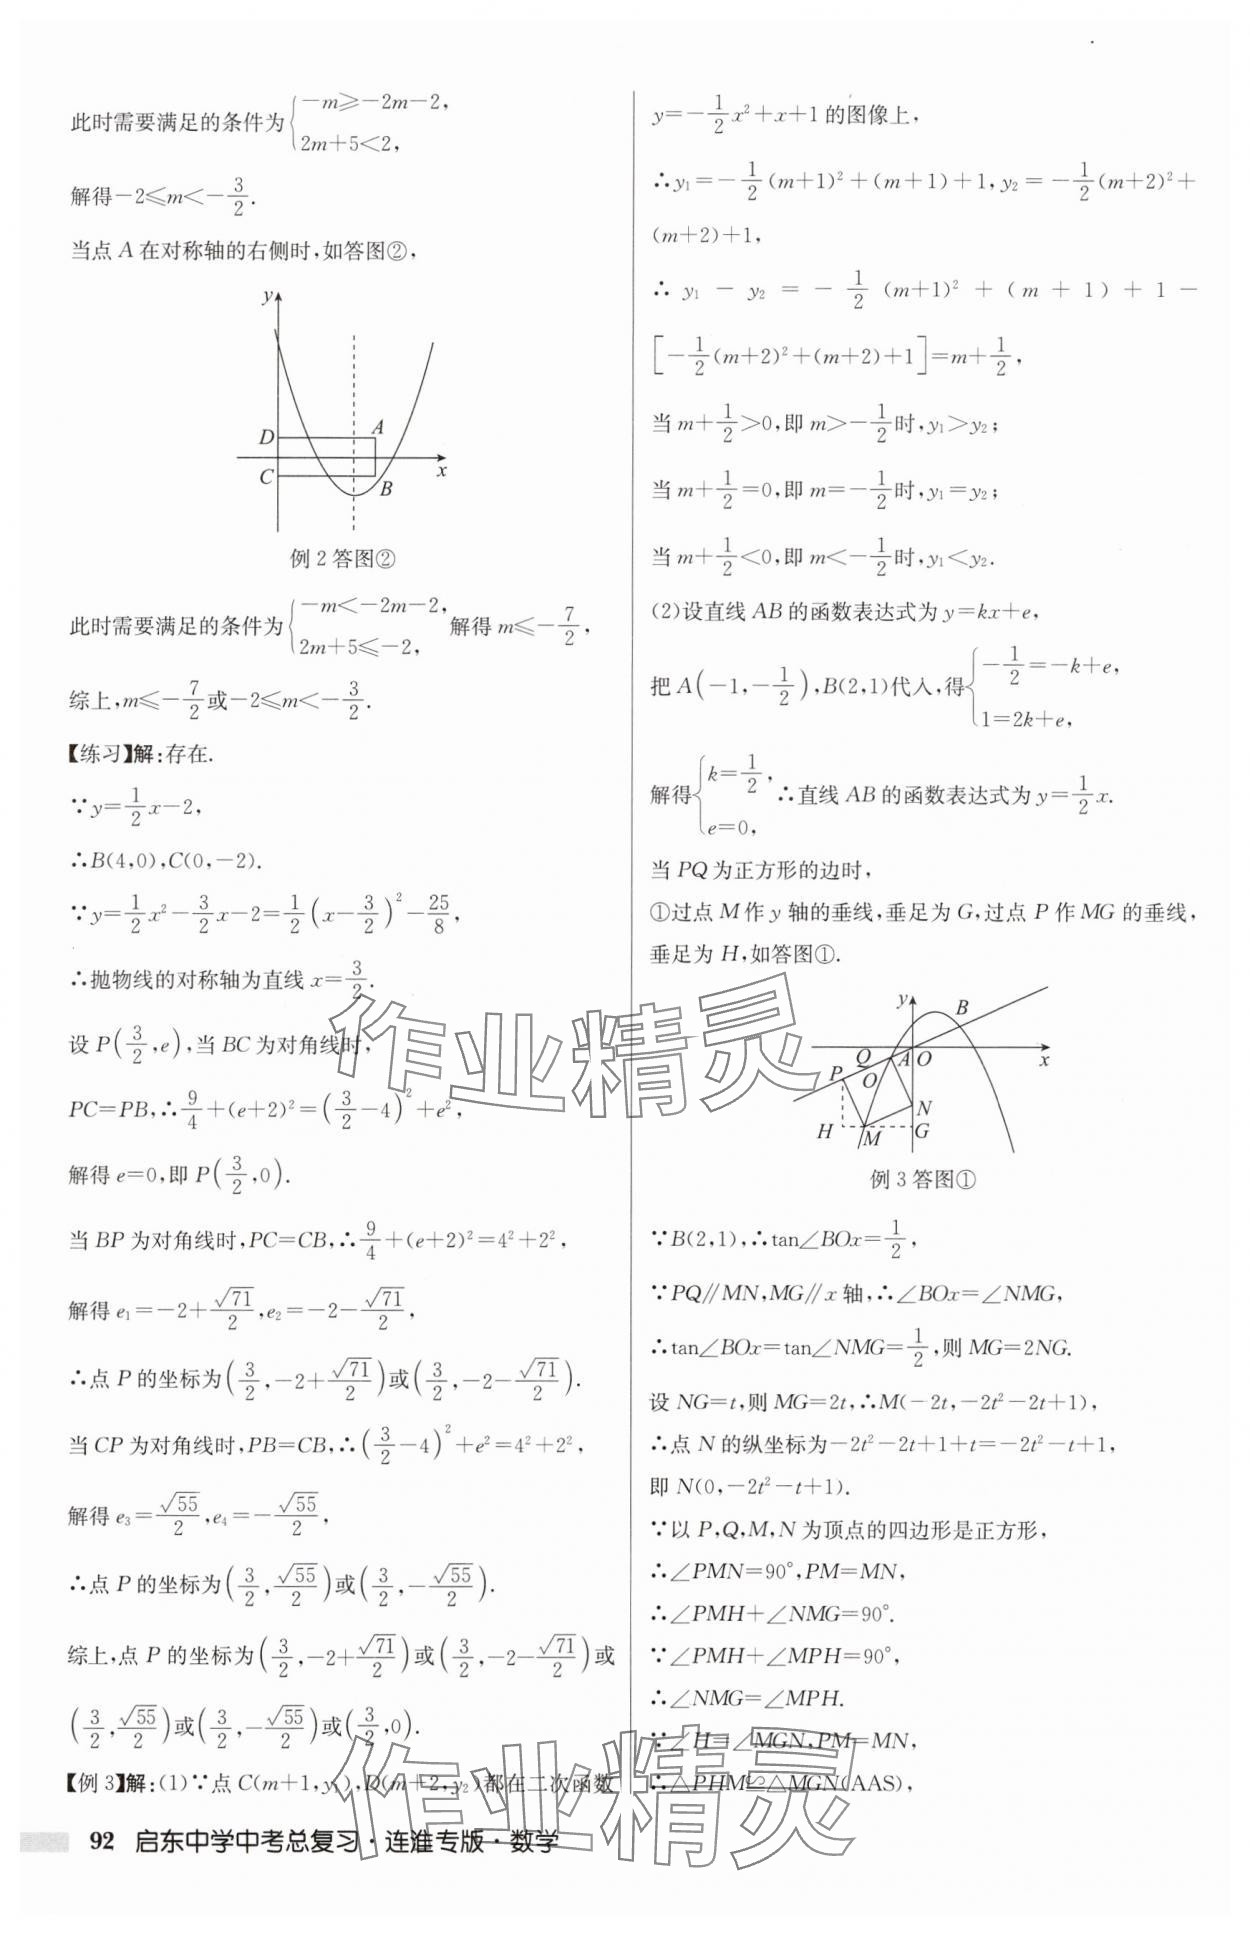 此时需要满足的条件为{-m≥-2m-2, 2m+5<2,
解得-2≤m<-3/2.
当点 A 在对称轴的右侧时,如答图②,
y
D
A
C
B
x
例 2 答图②
此时需要满足的条件为{-m<-2m-2, 2m+5≤-2, 解得 m≤-7/2,
综上,m≤-7/2或-2≤m<-3/2.
【练习】解:存在.
∵y=1/2x-2,
∴B(4,0),C(0,-2).
∵y=1/2x²-3/2x-2=1/2(x-3/2)²-25/8,
∴抛物线的对称轴为直线 x=3/2.
设 P(3/2,e),当 BC 为对角线时,
PC=PB,∴9/4+(e+2)²=(3/2-4)²+e²,
解得 e=0,即 P(3/2,0).
当 BP 为对角线时,PC=CB,∴9/4+(e+2)²=4²+2²,
解得 e₁=-2+√71/2,e₂=-2-√71/2,
∴点 P 的坐标为(3/2,-2+√71/2)或(3/2,-2-√71/2).
当 CP 为对角线时,PB=CB,∴(3/2-4)²+e²=4²+2²,
解得 e₃=√55/2,e₄=-√55/2,
∴点 P 的坐标为(3/2,√55/2)或(3/2,-√55/2).
综上,点 P 的坐标为(3/2,-2+√71/2)或(3/2,-2-√71/2)或
(3/2,√55/2)或(3/2,-√55/2)或(3/2,0).
【例 3】解:(1)∵点 C(m+1,y₁),D(m+2,y₂)都在二次函数
y=-1/2x²+x+1 的图像上,
∴y₁=-1/2(m+1)²+(m+1)+1,y₂=-1/2(m+2)²+
(m+2)+1,
∴ y₁ - y₂ = -1/2(m+1)² + (m + 1) + 1 -
[-1/2(m+2)²+(m+2)+1]=m+1/2,
当 m+1/2>0,即 m>-1/2时,y₁>y₂;
当 m+1/2=0,即 m=-1/2时,y₁=y₂;
当 m+1/2<0,即 m<-1/2时,y₁<y₂.
(2)设直线 AB 的函数表达式为 y=kx+e,
把 A(-1,-1/2),B(2,1)代入,得{-1/2=-k+e, 1=2k+e,
解得{k=1/2, e=0, ∴直线 AB 的函数表达式为 y=1/2x.
当 PQ 为正方形的边时,
①过点 M 作 y 轴的垂线,垂足为 G,过点 P 作 MG 的垂线,
垂足为 H,如答图①.
y
B
Q
A
O
x
P
O
N
H
M
G
例 3 答图①
∵B(2,1),∴tan∠BOx=1/2,
∵PQ∥MN,MG∥x 轴,∴∠BOx=∠NMG,
∴tan∠BOx=tan∠NMG=1/2,则 MG=2NG.
设 NG=t,则 MG=2t,∴M(-2t,-2t²-2t+1),
∴点 N 的纵坐标为-2t²-2t+1+t=-2t²-t+1,
即 N(0,-2t²-t+1).
∵以 P,Q,M,N 为顶点的四边形是正方形,
∴∠PMN=90°,PM=MN,
∴∠PMH+∠NMG=90°.
∵∠PMH+∠MPH=90°,
∴∠NMG=∠MPH.
∵∠H=∠MGN,PM=MN,
∴△PHM≌△MGN(AAS),
作业精灵
作业精灵
92 启东中学中考总复习·连淮专版·数学